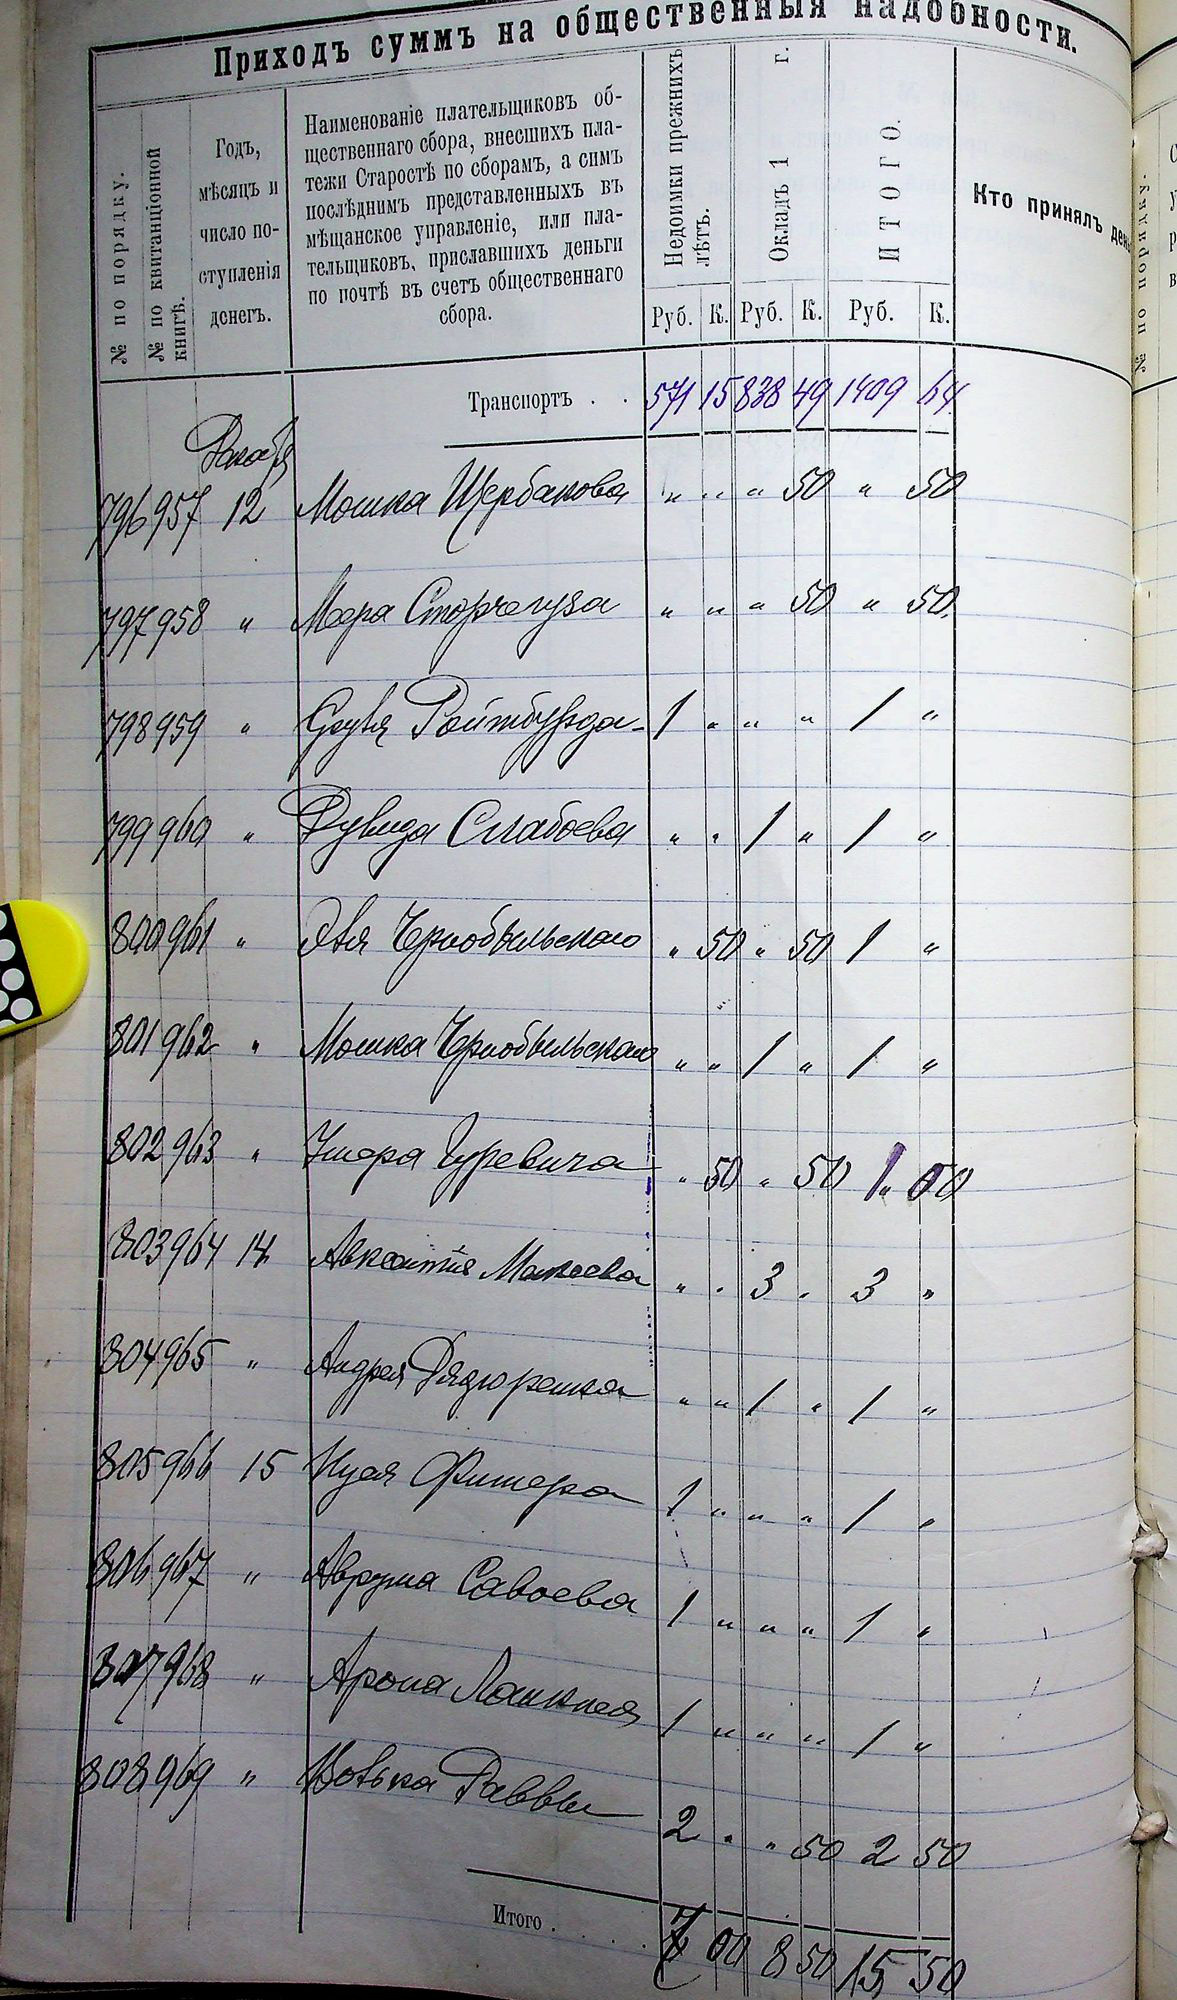 Приходъ суммъ на общественныя надобности.
№ по порядку.
№ по квитанціонной книгѣ.
Годъ,
мѣсяцъ и
число по-
ступленія
денегъ.
Наименованіе плательщиковъ об-
щественнаго сбора, внесшихъ пла-
тежи Старостѣ по сборамъ, а симъ
послѣднимъ представленныхъ въ
мѣщанское управленіе, или пла-
тельщиковъ, приславшихъ деньги
по почтѣ въ счетъ общественнаго
сбора.
Недоимки прежнихъ
лѣтъ.
Окладъ 1 г.
ИТОГО.
Кто принялъ
Руб. К. Руб. К. Руб. К.
Транспортъ . . 571 15 838 49 1409 64
Декабря
796 957 12 Мошка Щербакова " " " 50 " 50
797 958 " Меера Сторчегуза " " " 50 " 50
798 959 " Ройтбурда 1 " " " 1 "
799 960 " Дувида Слабоева " " 1 " 1 "
800 961 " Чернобыльскаго " 50 " 50 1 "
801 962 " Мошка Чернобыльскаго " " 1 " 1 "
802 963 " Ушера Гуревича " 50 " 50 1 00
803 964 14 Авксентія Макеева " " 3 " 3 "
804 965 " Андрея " " 1 " 1 "
805 966 15 Фишера 1 " " " 1 "
806 967 " Аврума Савоева 1 " " " 1 "
807 968 " Арона 1 " " " 1 "
808 969 " Волька Раввы 2 " " 50 2 50
Итого . . . . 7 00 8 50 15 50
№ по порядку.